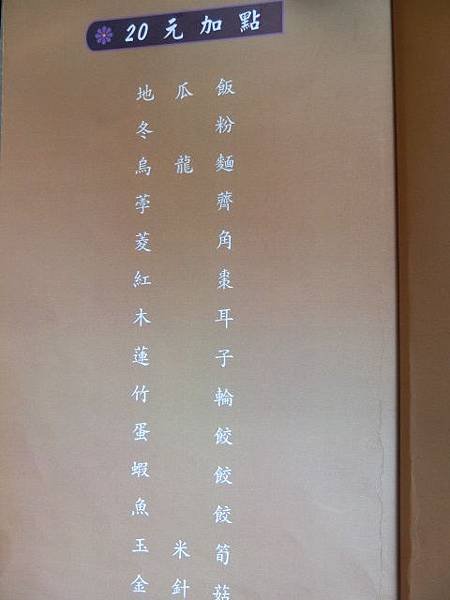 20元加點
地瓜飯
冬粉
烏龍麵
荸薺
菱角
紅棗
木耳
蓮子
竹輪
蛋餃
蝦餃
魚餃
玉米筍
金針菇